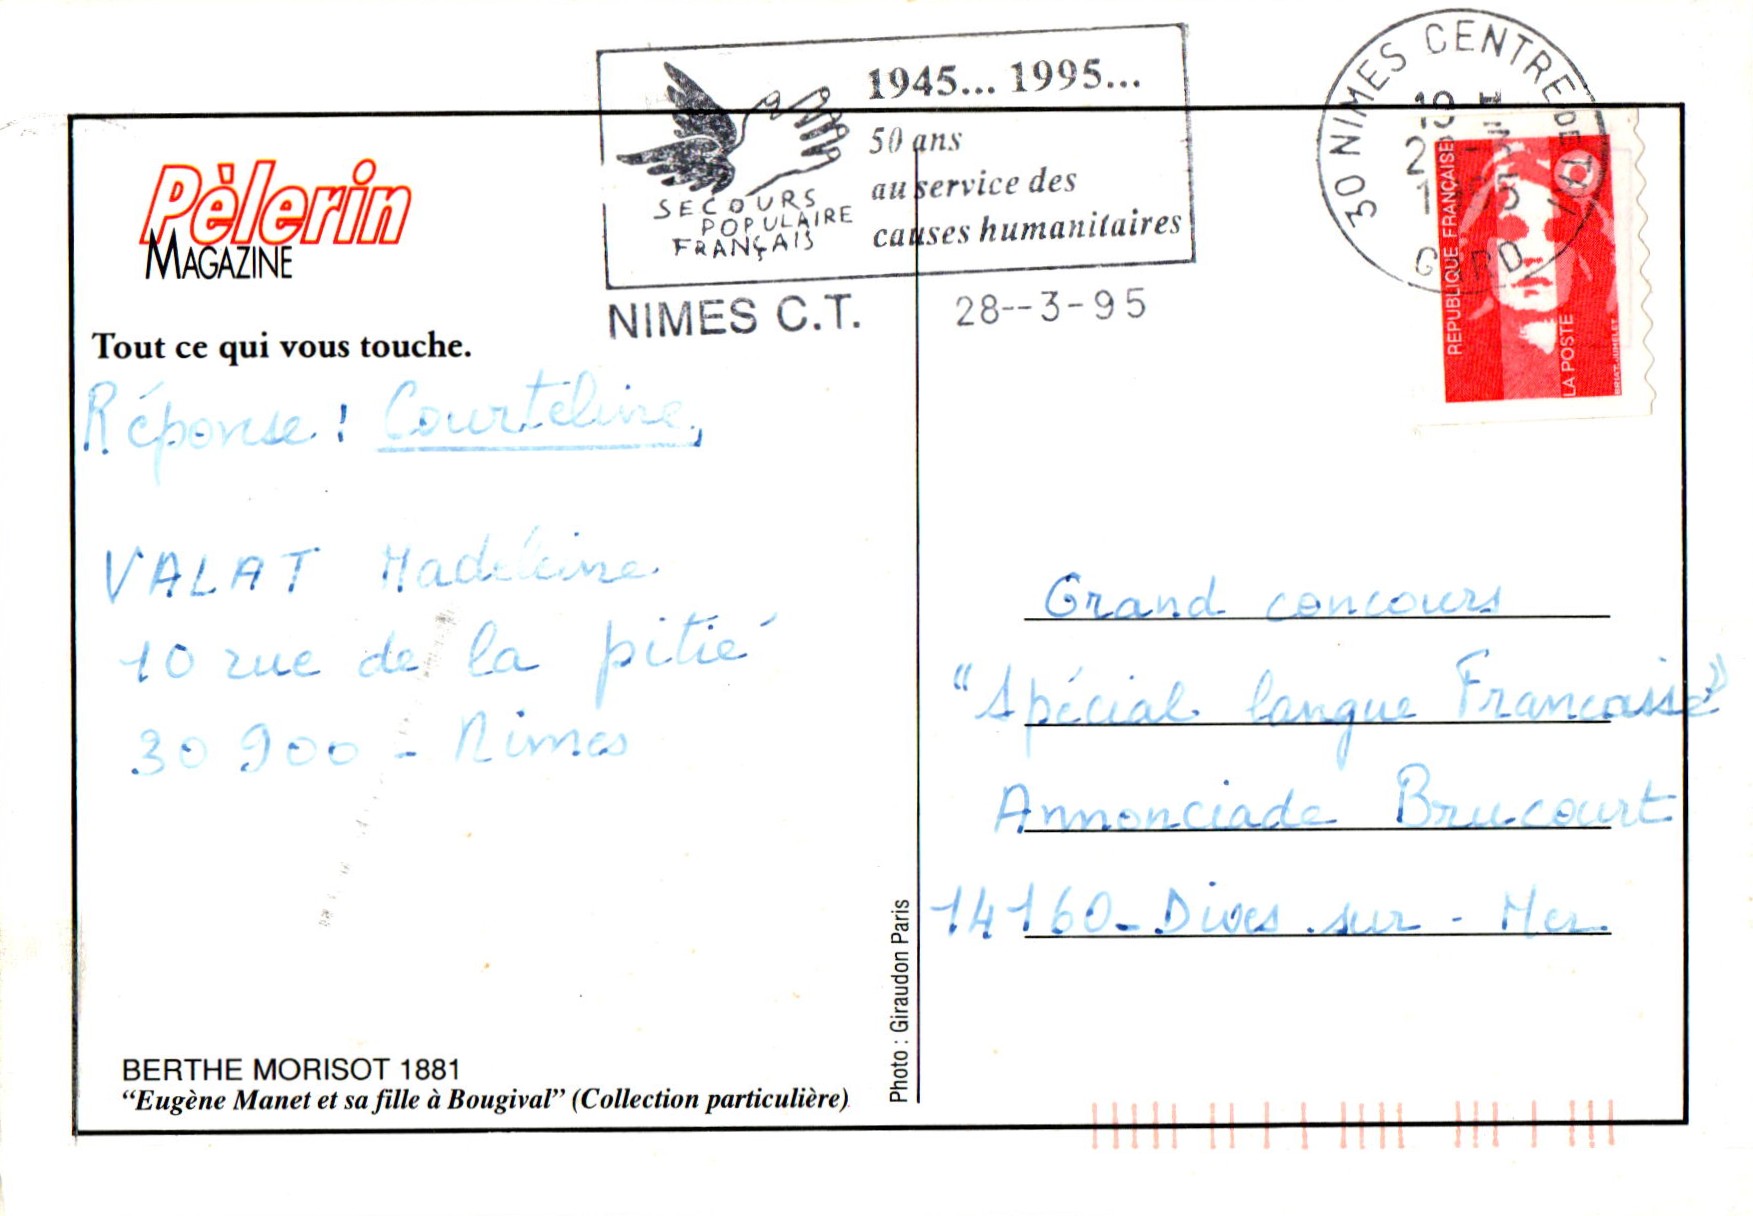 1945... 1995...
50 ans
au service des
causes humanitaires
SECOURS
POPULAIRE
FRANÇAIS
NIMES C.T.
28--3-95
30 NIMES CENTRE DE TRI
REPUBLIQUE FRANÇAISE
LA POSTE
BRIAT-JUMELET
Pèlerin
MAGAZINE
Tout ce qui vous touche.
Réponse : Courteline,
VALAT Madeleine
10 rue de la pitié
30 900 - Nimes
Grand concours
"Spécial langue Francaise"
Annonciade Brucourt
14160 - Dives sur - Mer
Photo : Giraudon Paris
BERTHE MORISOT 1881
“Eugène Manet et sa fille à Bougival” (Collection particulière)